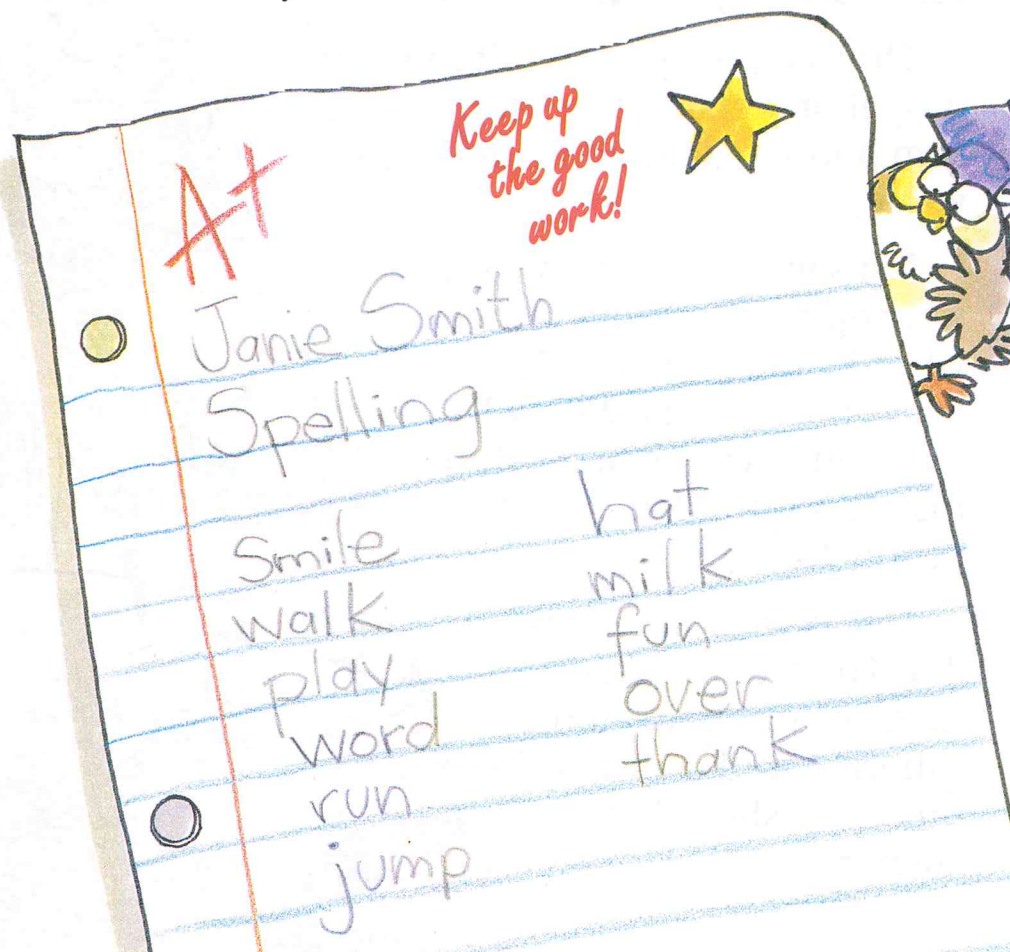 A+
Keep up
the good
work!
Janie Smith
Spelling
Smile
walk
play
word
run
jump
hat
milk
fun
over
thank